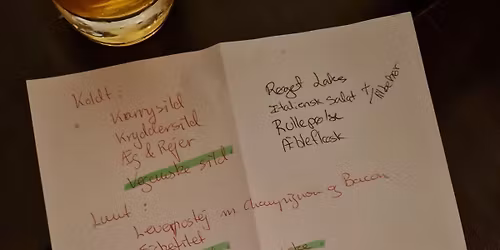 Koldt:
Karrysild
Kryddersild
Æg & Rejer
Veganske sild
Røget Laks
Italiensk Salat +
Rullepølse
Æbleflæsk
Lunt:
Leverpostej m champignon og Bacon